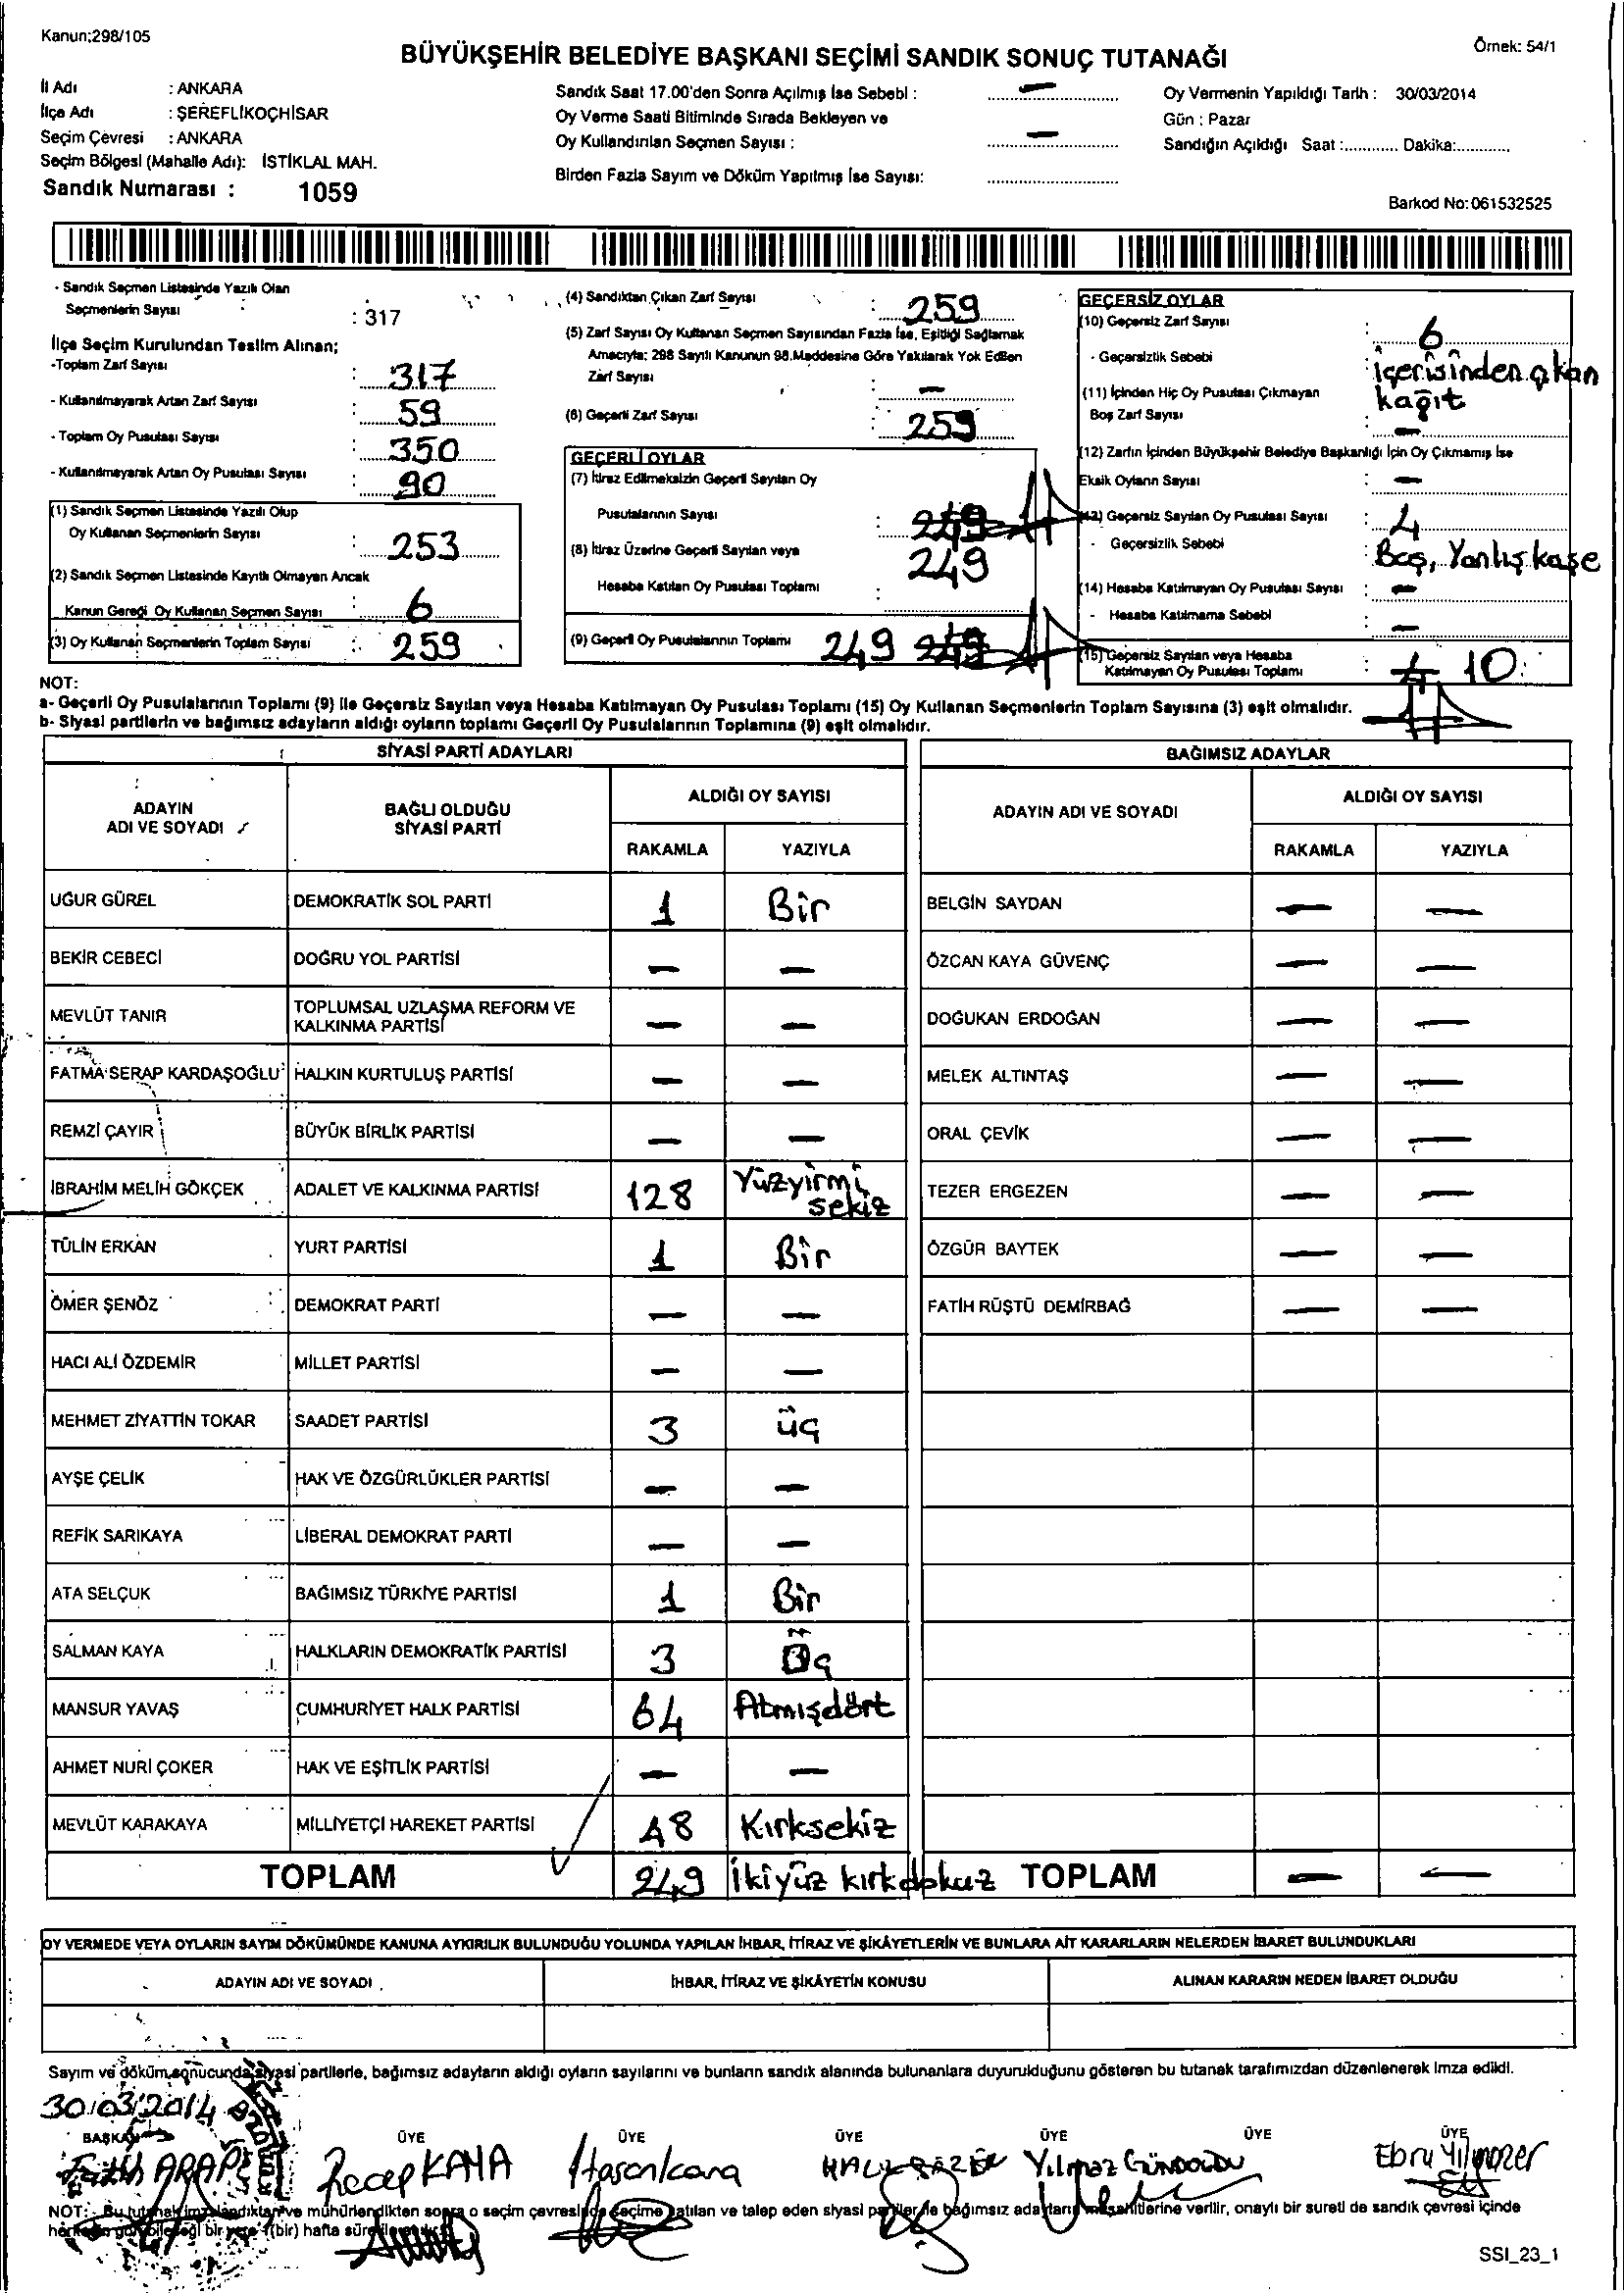 Kanun;298/105
Örnek: 54/1
BÜYÜKŞEHİR BELEDİYE BAŞKANI SEÇİMİ SANDIK SONUÇ TUTANAĞI
İl Adı : ANKARA
İlçe Adı : ŞEREFLİKOÇHİSAR
Seçim Çevresi : ANKARA
Seçim Bölgesi (Mahalle Adı): İSTİKLAL MAH.
Sandık Numarası : 1059
Sandık Saat 17.00'den Sonra Açılmış İse Sebebi : —
Oy Verme Saati Bitiminde Sırada Bekleyen ve
Oy Kullandırılan Seçmen Sayısı : —
Birden Fazla Sayım ve Döküm Yapılmış İse Sayısı: ....................
Oy Vermenin Yapıldığı Tarih : 30/03/2014
Gün : Pazar
Sandığın Açıldığı Saat :............ Dakika:...........
Barkod No:061532525
- Sandık Seçmen Listesinde Yazılı Olan
Seçmenlerin Sayısı : 317
İlçe Seçim Kurulundan Teslim Alınan;
-Toplam Zarf Sayısı : 317
- Kullanılmayarak Artan Zarf Sayısı : 59
- Toplam Oy Pusulası Sayısı : 350
- Kullanılmayarak Artan Oy Pusulası Sayısı : 90
(1) Sandık Seçmen Listesinde Yazılı Olup
Oy Kullanan Seçmenlerin Sayısı : 253
(2) Sandık Seçmen Listesinde Kayıtlı Olmayan Ancak
Kanun Gereği Oy Kullanan Seçmen Sayısı : 6
(3) Oy Kullanan Seçmenlerin Toplam Sayısı : 259
(4) Sandıktan Çıkan Zarf Sayısı : 259
(5) Zarf Sayısı Oy Kullanan Seçmen Sayısından Fazla İse, Eşitliği Sağlamak
Amacıyla; 298 Sayılı Kanunun 98.Maddesine Göre Yakılarak Yok Edilen
Zarf Sayısı : —
(6) Geçerli Zarf Sayısı : 259
GEÇERLİ OYLAR
(7) İtiraz Edilmeksizin Geçerli Sayılan Oy
Pusulalarının Sayısı : 249
249
(8) İtiraz Üzerine Geçerli Sayılan veya
Hesaba Katılan Oy Pusulası Toplamı :
(9) Geçerli Oy Pusulalarının Toplamı 249 249
GEÇERSİZ OYLAR
(10) Geçersiz Zarf Sayısı : 6
- Geçersizlik Sebebi : İçerisinden çıkan
kağıt
(11) İçinden Hiç Oy Pusulası Çıkmayan
Boş Zarf Sayısı : —
(12) Zarfın İçinden Büyükşehir Belediye Başkanlığı İçin Oy Çıkmamış İse
Eksik Oyların Sayısı : —
(13) Geçersiz Sayılan Oy Pusulası Sayısı : 4
- Geçersizlik Sebebi : Boş, Yanlış kaşe
(14) Hesaba Katılmayan Oy Pusulası Sayısı : —
- Hesaba Katılmama Sebebi : —
(15) Geçersiz Sayılan veya Hesaba
Katılmayan Oy Pusulası Toplamı : 10
NOT:
a- Geçerli Oy Pusulalarının Toplamı (9) ile Geçersiz Sayılan veya Hesaba Katılmayan Oy Pusulası Toplamı (15) Oy Kullanan Seçmenlerin Toplam Sayısına (3) eşit olmalıdır.
b- Siyasi partilerin ve bağımsız adayların aldığı oyların toplamı Geçerli Oy Pusulalarının Toplamına (9) eşit olmalıdır.
SİYASİ PARTİ ADAYLARI
ADAYIN ADI VE SOYADI BAĞLI OLDUĞU SİYASİ PARTİ ALDIĞI OY SAYISI
RAKAMLA YAZIYLA
UĞUR GÜREL DEMOKRATİK SOL PARTİ 1 Bir
BEKİR CEBECİ DOĞRU YOL PARTİSİ — —
MEVLÜT TANIR TOPLUMSAL UZLAŞMA REFORM VE KALKINMA PARTİSİ — —
FATMA SERAP KARDAŞOĞLU HALKIN KURTULUŞ PARTİSİ — —
REMZİ ÇAYIR BÜYÜK BİRLİK PARTİSİ — —
İBRAHİM MELİH GÖKÇEK ADALET VE KALKINMA PARTİSİ 128 Yüzyirmi sekiz
TÜLİN ERKAN YURT PARTİSİ 1 Bir
ÖMER ŞENÖZ DEMOKRAT PARTİ — —
HACI ALİ ÖZDEMİR MİLLET PARTİSİ — —
MEHMET ZİYATTİN TOKAR SAADET PARTİSİ 3 üç
AYŞE ÇELİK HAK VE ÖZGÜRLÜKLER PARTİSİ — —
REFİK SARIKAYA LİBERAL DEMOKRAT PARTİ — —
ATA SELÇUK BAĞIMSIZ TÜRKİYE PARTİSİ 1 Bir
SALMAN KAYA HALKLARIN DEMOKRATİK PARTİSİ 3 Üç
MANSUR YAVAŞ CUMHURİYET HALK PARTİSİ 64 Atmışdört
AHMET NURİ ÇOKER HAK VE EŞİTLİK PARTİSİ — —
MEVLÜT KARAKAYA MİLLİYETÇİ HAREKET PARTİSİ 48 Kırksekiz
TOPLAM 249 İkiyüz kırkdokuz
BAĞIMSIZ ADAYLAR
ADAYIN ADI VE SOYADI ALDIĞI OY SAYISI
RAKAMLA YAZIYLA
BELGİN SAYDAN — —
ÖZCAN KAYA GÜVENÇ — —
DOĞUKAN ERDOĞAN — —
MELEK ALTINTAŞ — —
ORAL ÇEVİK — —
TEZER ERGEZEN — —
ÖZGÜR BAYTEK — —
FATİH RÜŞTÜ DEMİRBAĞ — —
TOPLAM — —
OY VERMEDE VEYA OYLARIN SAYIM DÖKÜMÜNDE KANUNA AYKIRILIK BULUNDUĞU YOLUNDA YAPILAN İHBAR, İTİRAZ VE ŞİKÂYETLERİN VE BUNLARA AİT KARARLARIN NELERDEN İBARET BULUNDUKLARI
ADAYIN ADI VE SOYADI İHBAR, İTİRAZ VE ŞİKÂYETİN KONUSU ALINAN KARARIN NEDEN İBARET OLDUĞU
Sayım ve döküm sonucunda siyasi partilerle, bağımsız adayların aldığı oyların sayılarını ve bunların sandık alanında bulunanlara duyurulduğunu gösteren bu tutanak tarafımızdan düzenlenerek imza edildi.
30/03/2014
BAŞKAN ÜYE ÜYE ÜYE ÜYE ÜYE ÜYE
Fatih ARAP Recep KAYA Hasan kara Yılmaz GÜNDOĞDU Ebru Yılmazer
NOT: Bu tutanak imzalandıktan ve mühürlendikten sonra o seçim çevresinde seçime katılan ve talep eden siyasi partiler ile bağımsız adayların müşahitlerine verilir, onaylı bir sureti de sandık çevresi içinde
herkesin görebileceği bir yere 1(bir) hafta süre ile asılır.
SSI_23_1